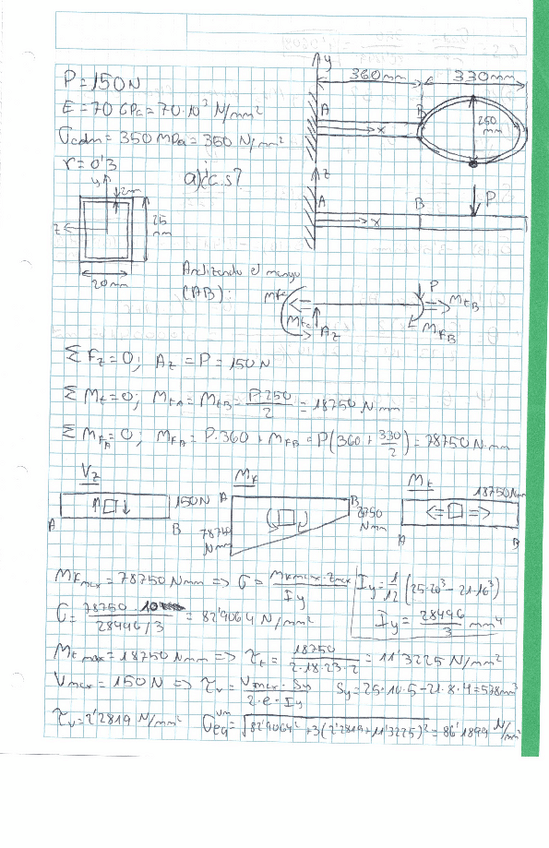 P=150N
E = 70 GPa = 70·10³ N/mm²
σadm = 350 MPa = 350 N/mm²
r = 0'3
a)¿c.s?
y
360mm
330mm
A
B
250 mm
x
z
A
B
P
x
y
2mm
z
25 mm
20mm
Analizando el mango
(AB):
P
MtB
Az
MFB
ΣFz=0; Az = P = 150N
ΣMt=0; MtA = MtB = P·250/2 = 18750 N mm
ΣMFA=0; MFA = P·360 + MFB = P(360 + 330/2) = 78750 N mm
Vz
MF
Mt
18750 Nmm
150N
A
B
A
B
Nmm
Nmm
A
B
MFmax = 78750 Nmm => σ = MFmax·zmax/Iy
Iy = 1/12 (25·20³ − 21·16³)
σ = 78750·10/28496/3 = 82'9064 N/mm²
Iy = 28496/3 mm⁴
Mtmax = 18750 Nmm => τt = 18750/2·18·23·2 = 11'3225 N/mm²
Vmax = 150N => τv = Vmax·Sy/2·e·Iy
Sy = 25·10·5 − 21·8·4 = 578mm³
τv = 2'2819 N/mm²
σeq^VM = √82'9064² + 3(2'2819 + 11'3225)² = 86'1899 N/mm²